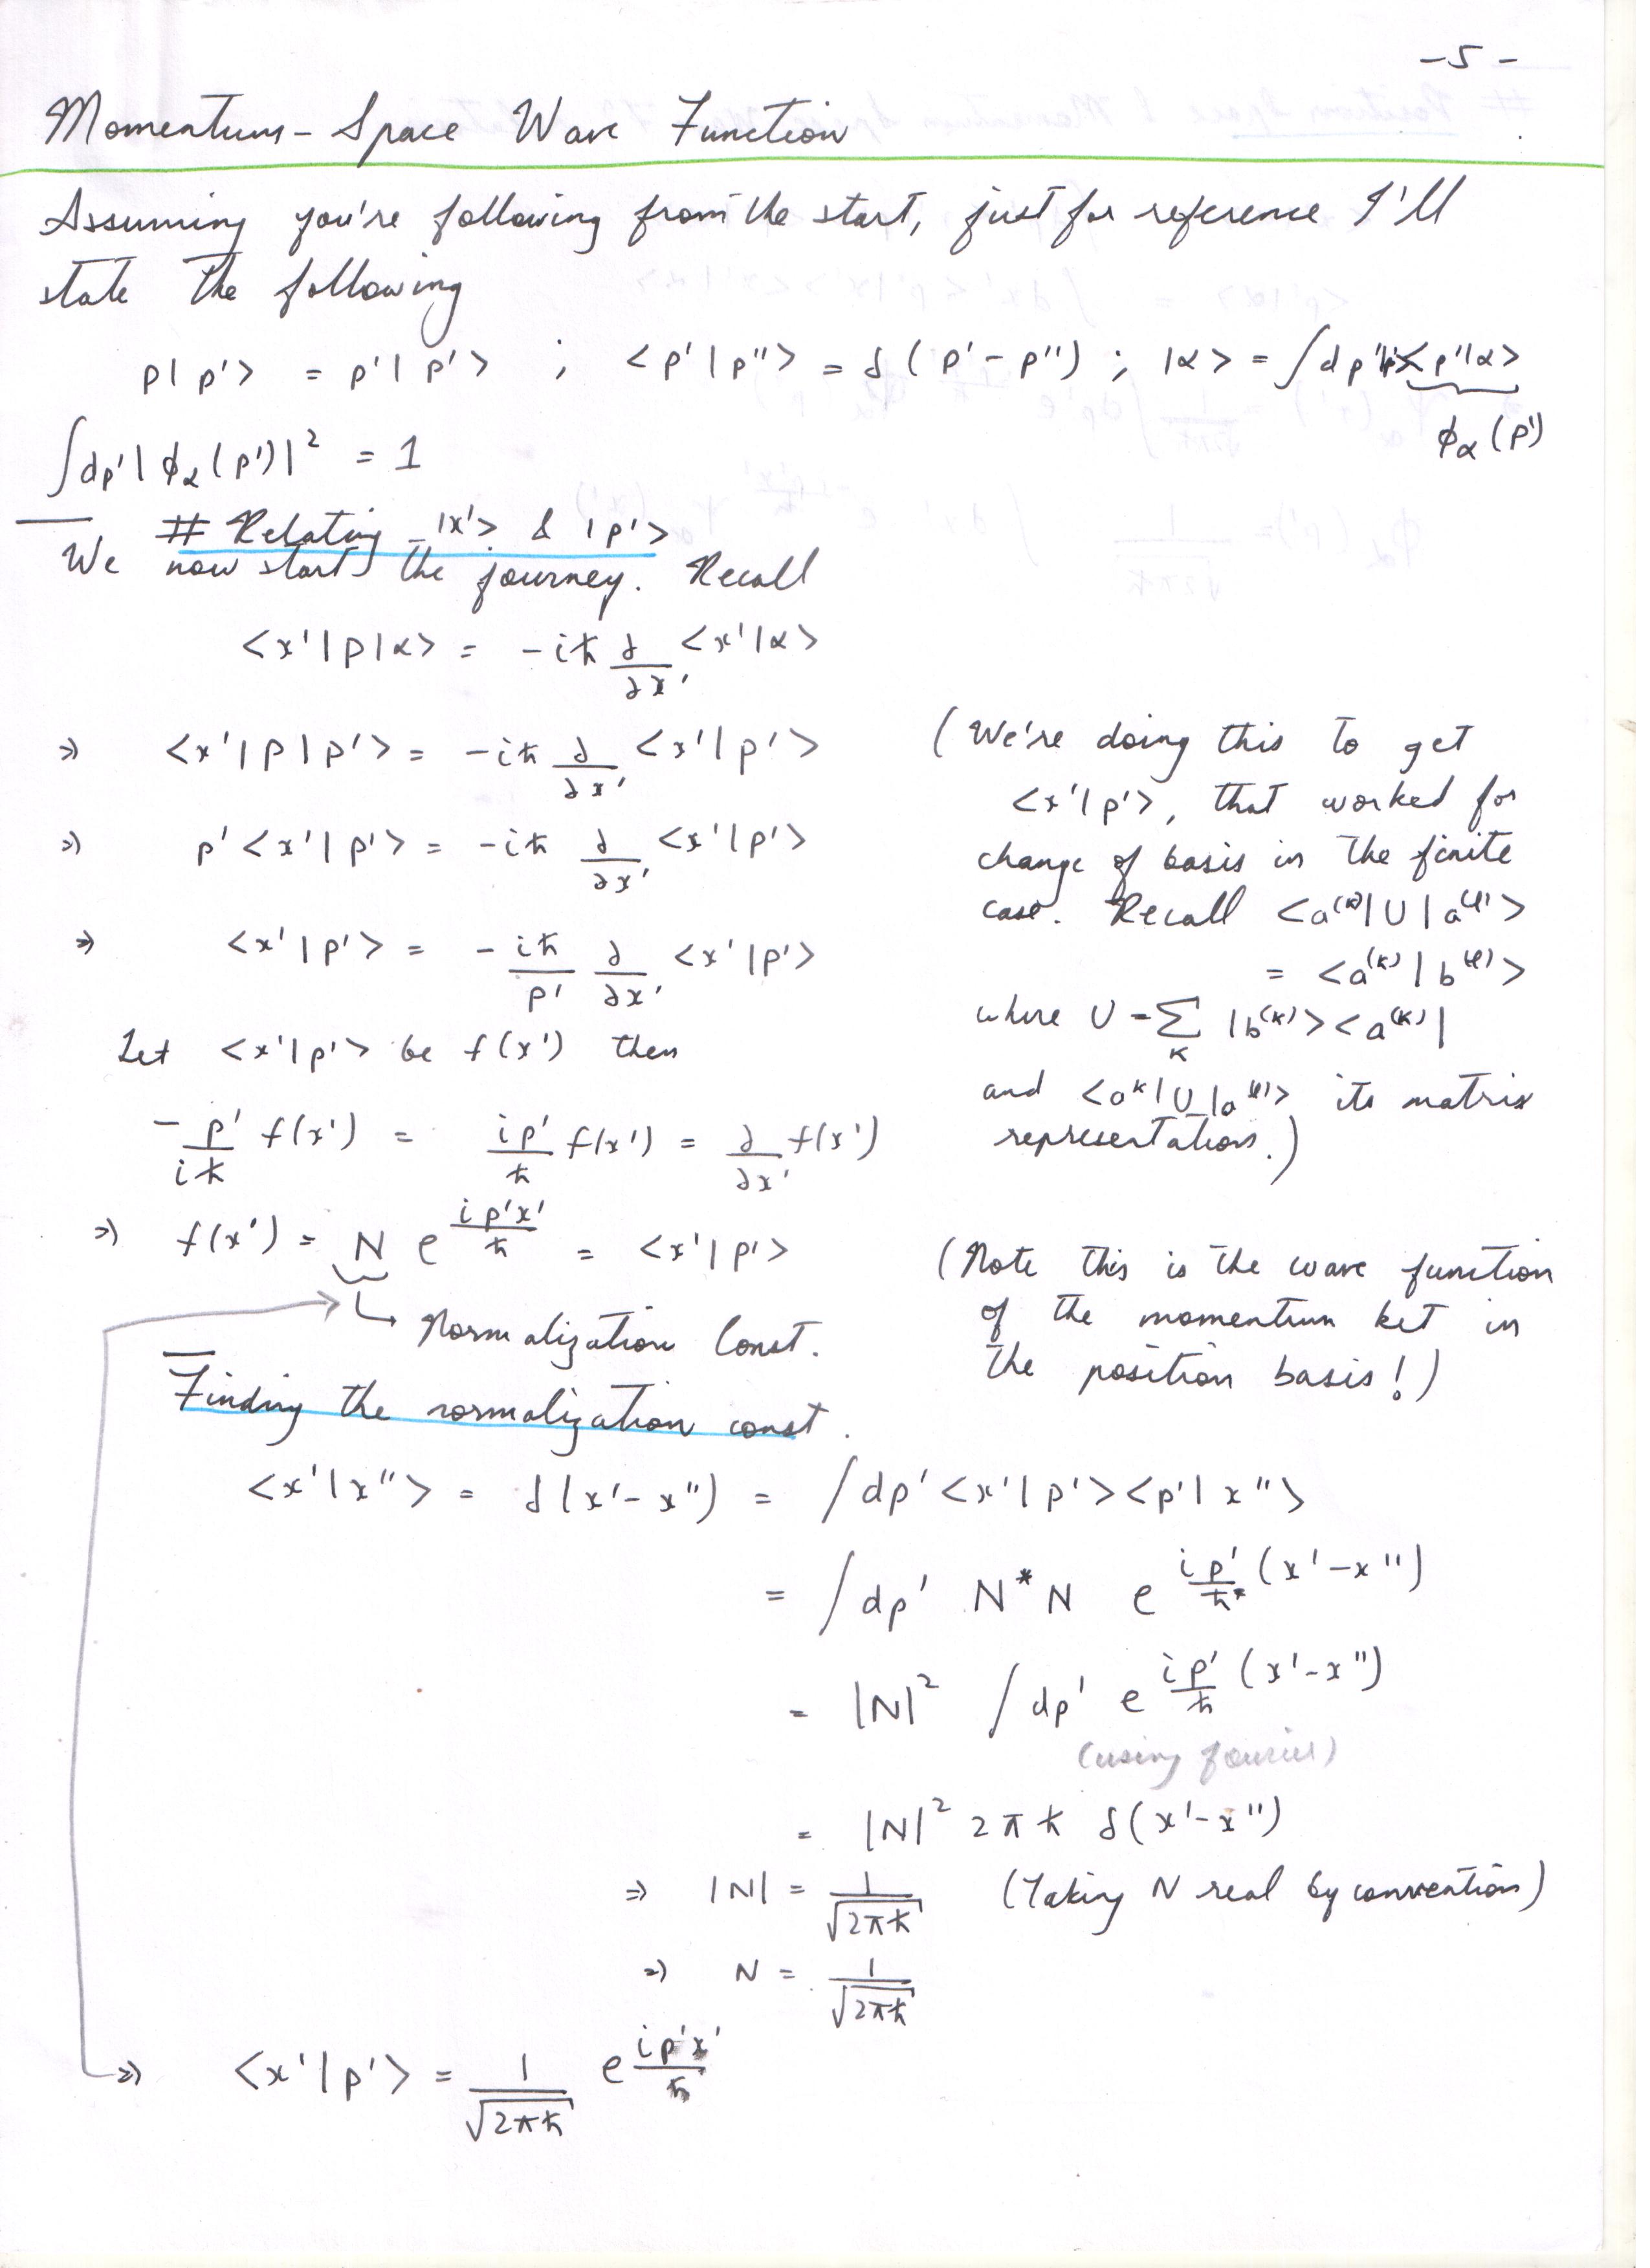 -5-
Momentum-Space Wave Function
Assuming you're following from the start, just for reference I'll
state the following
p|p'> = p'|p'> ; <p'|p''> = δ(p'-p'') ; |α> = ∫dp'|p'><p'|α>
ϕα(p')
∫dp'|ϕα(p')|² = 1
# Relating |x'> & |p'>
We now start the journey. Recall
<x'|p|α> = -iħ ∂/∂x' <x'|α>
⇒ <x'|p|p'> = -iħ ∂/∂x' <x'|p'>
⇒ p'<x'|p'> = -iħ ∂/∂x' <x'|p'>
⇒ <x'|p'> = -iħ/p' ∂/∂x' <x'|p'>
(We're doing this to get
<x'|p'>, that worked for
change of basis in the finite
case. Recall <a^(k)|U|a^(l)>
= <a^(k)|b^(l)>
where U = Σ_K |b^(k)><a^(k)|
and <a^k|U|a^(l)> its matrix
representation.)
Let <x'|p'> be f(x') then
-p'/iħ f(x') = ip'/ħ f(x') = ∂/∂x' f(x')
⇒ f(x') = N e^(ip'x'/ħ) = <x'|p'>
Normalization Const.
(Note this is the wave function
of the momentum ket in
the position basis!)
Finding the normalization const.
<x'|x''> = δ(x'-x'') = ∫dp'<x'|p'><p'|x''>
= ∫dp' N*N e^(ip'/ħ (x'-x''))
= |N|² ∫dp' e^(ip'/ħ (x'-x''))
(using fourier)
= |N|² 2πħ δ(x'-x'')
⇒ |N| = 1/√2πħ (Taking N real by convention)
⇒ N = 1/√2πħ
⇒ <x'|p'> = 1/√2πħ e^(ip'x'/ħ)